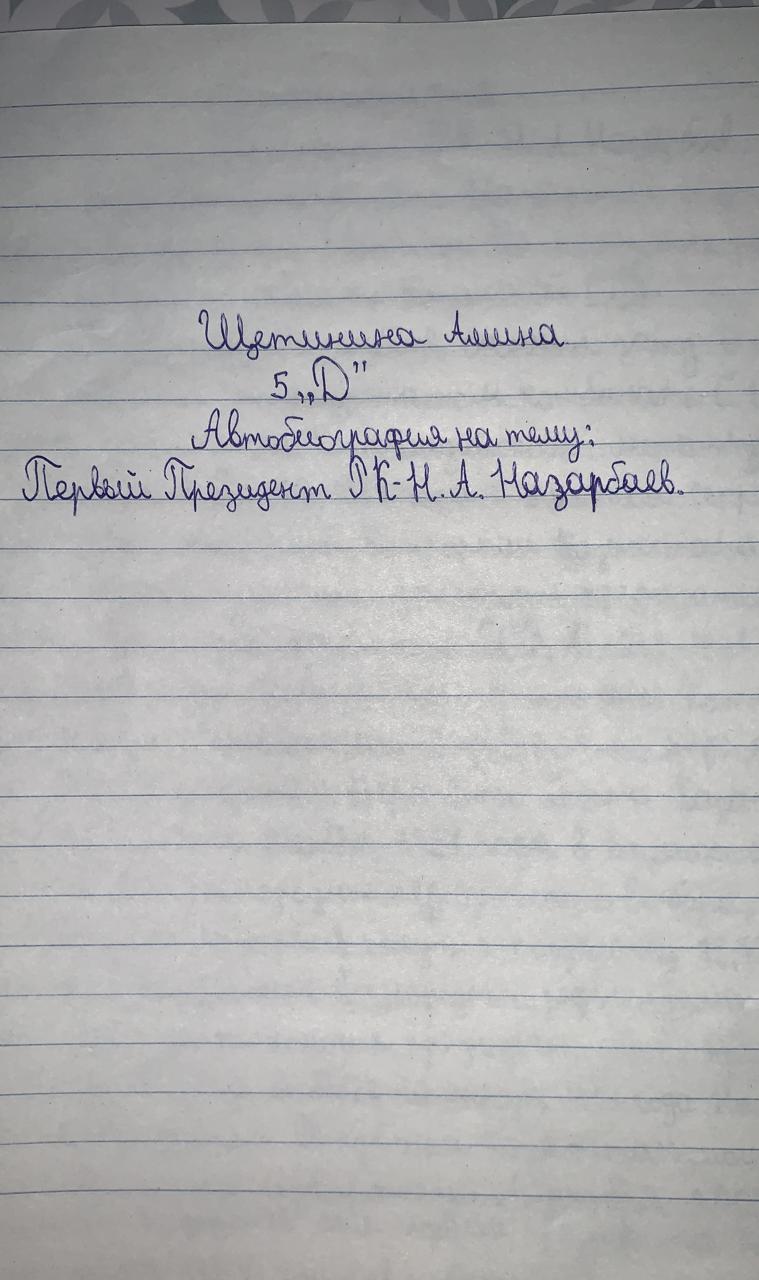 Щетинина Амина
5 „D"
Автобиография на тему:
Первый Президент РК-Н.А. Назарбаев.